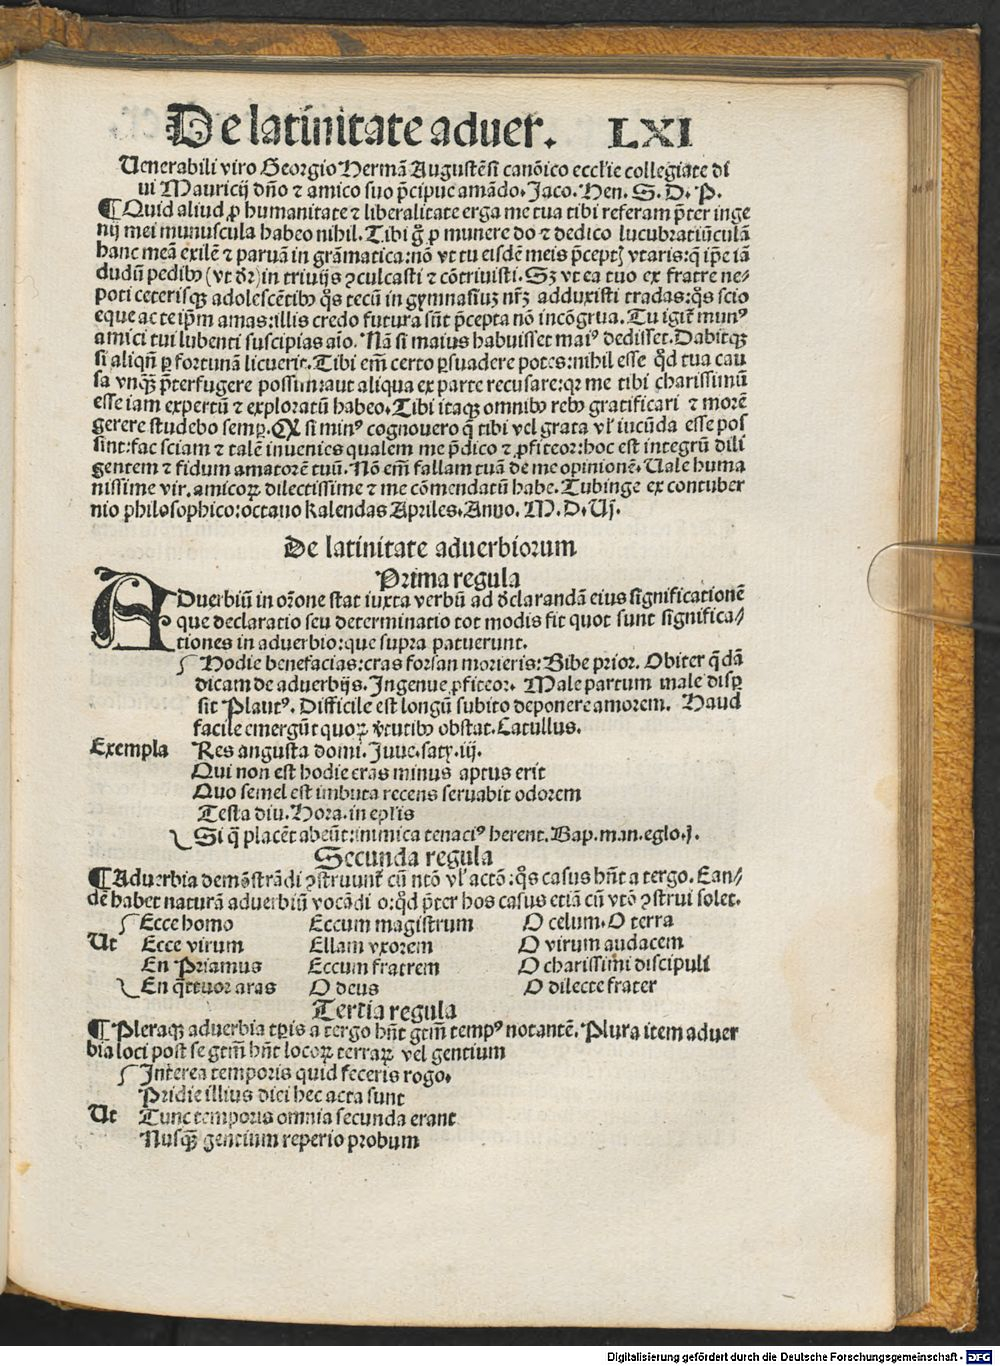 De latinitate aduer. LXI
Uenerabili viro Georgio Hermā Augustēsi canōico ecclie collegiate di
ui Mauricij dño ⁊ amico suo p̄cipue amādo. Jaco. Hen. S. D. P.
¶ Quid aliud ꝓ humanitate ⁊ liberalitate erga me tua tibi referam p̄ter inge
nij mei munuscula habeo nihil. Tibi g̃ ꝓ munere do ⁊ dedico lucubratiūculā
hanc meā exilē ⁊ paruā in grāmatica: nō vt tu eisdē meis p̄ceptꝭ vtaris: q̄ ip̄e iā
dudū pedibꝰ (vt dr̄) in triuijs ꝯculcasti ⁊ cōtriuisti. Sꝫ vt ea tuo ex fratre ne⸗
poti ceterisqꝫ adolescētibꝰ q̄s tecū in gymnasiuꝫ nr̄ꝫ adduxisti tradas: q̄s scio
eque ac te ip̄m amas: illis credo futura sūt p̄cepta nō incōgrua. Tu igit᷑ munꝰ
amici tui lubenti suscipias aīo. Nā si maius habuisset maiꝰ dedisset. Dabitqꝫ
si aliqn̄ ꝑ fortunā licuerit. Tibi em̄ certo ꝑsuadere potes: nihil esse q̄d tua cau
sa vnqꝫ̄ p̄terfugere possim: aut aliqua ex parte recusare: qꝛ me tibi charissimū
esse iam expertū ⁊ exploratū habeo. Tibi itaqꝫ omnibꝰ rebꝰ gratificari ⁊ morē
gerere studebo semꝑ. Qḋ si minꝰ cognouero q̄ tibi vel grata vl’ iucūda esse pos
sint: fac sciam ⁊ talē inuenies qualem me p̄dico ⁊ ꝓfiteor: hoc est integrū dili
gentem ⁊ fidum amatorē tuū. Nō em̄ fallam tuā de me opinionē. Uale huma
nissime vir. amicoꝝ dilectissime ⁊ me cōmendatū habe. Tubinge ex contuber
nio philosophico: octauo kalendas Apriles. Anno. M. D. Uj.
De latinitate aduerbiorum
Prima regula
ADuerbiū in or̄one stat iuxta verbū ad d̄clarandā eius significationē
que declaratio seu determinatio tot modis fit quot sunt significa⸗
tiones in aduerbio: que supra patuerunt.
Hodie benefacias: cras forsan morieris: Bibe prior. Obiter q̄dā
dicam de aduerbijs. Ingenue ꝓfiteor. Male partum male disꝑ
sit Plautꝰ. Difficile est longū subito deponere amorem. Haud
facile emergūt quoꝝ v̄tutibꝰ obstat. Catullus.
Exempla Res angusta domi. Juue. saty. iij.
Qui non est hodie cras minus aptus erit
Quo semel est imbuta recens seruabit odorem
Testa diu. Hora. in ep̄lis
Si q̄ placēt abeūt: inimica tenaciꝰ herent. Bap. man. eglo. j.
Secunda regula
¶ Aduerbia demōstrādi ꝯstruunt᷑ cū ntō vl’ actō: q̄s casus hn̄t a tergo. Ean⸗
dē habet naturā aduerbiū vocādi o: q̄d p̄ter hos casus etiā cū vtō ꝯstrui solet.
Ecce homo Eccum magistrum O celum. O terra
Ut Ecce virum Ellam vxorem O virum audacem
En Priamus Eccum fratrem O charissimi discipuli
En q̄ttuor aras O deus O dilecte frater
Tertia regula
¶ Pleraqꝫ aduerbia tp̄is a tergo hn̄t gtm̄ tempꝰ notantē. Plura item aduer
bia loci post se gtm̄ hn̄t locoꝝ terraꝝ vel gentium
Interea temporis quid feceris rogo.
Pridie illius diei hec acta sunt
Ut Tunc temporis omnia secunda erant
Nusqꝫ̄ gentium reperio probum
Digitalisierung gefördert durch die Deutsche Forschungsgemeinschaft - DFG